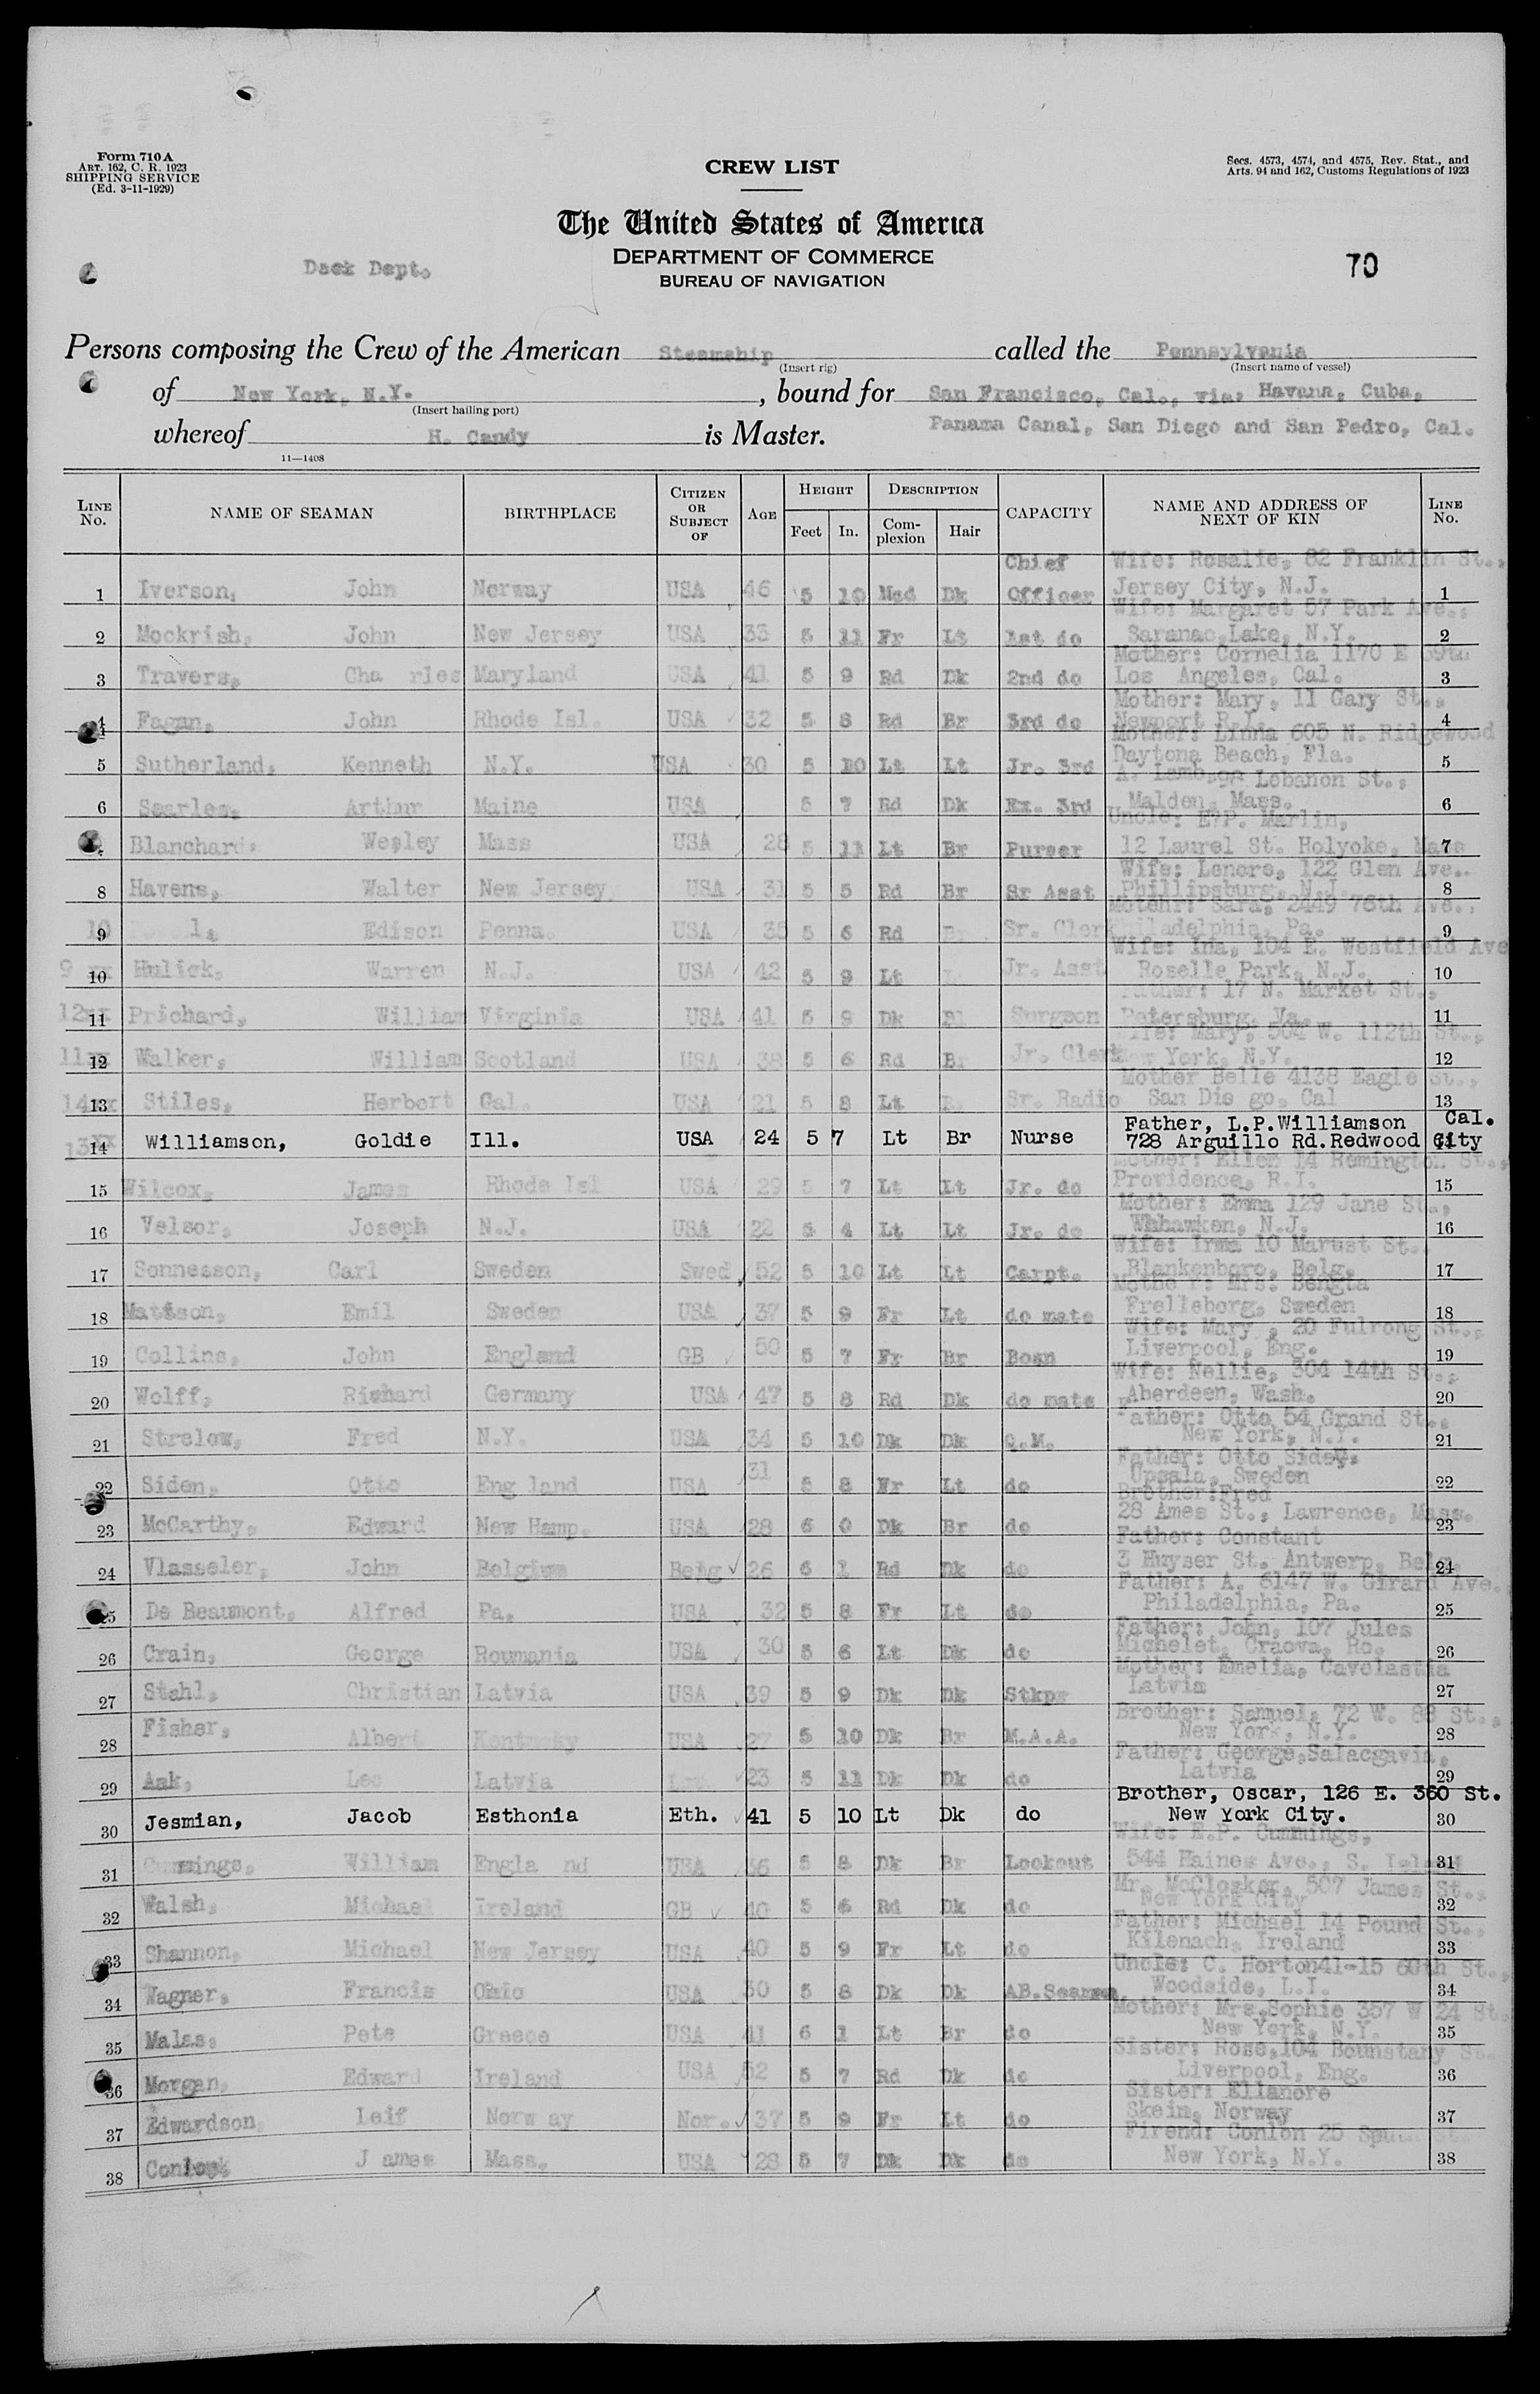 Form 710A
ART. 162, C. R. 1923
SHIPPING SERVICE
(Ed. 3-11-1929)
CREW LIST
Secs. 4573, 4574, and 4575, Rev. Stat., and
Arts. 94 and 162, Customs Regulations of 1923
The United States of America
DEPARTMENT OF COMMERCE
BUREAU OF NAVIGATION
Deck Dept.
70
Persons composing the Crew of the American Steamship called the Pennsylvania
(Insert rig) (Insert name of vessel)
of New York, N.Y. , bound for San Francisco, Cal., via: Havana, Cuba,
(Insert hailing port)
whereof H. Candy is Master. Panama Canal, San Diego and San Pedro, Cal.
11—1408
LINE No. NAME OF SEAMAN BIRTHPLACE CITIZEN OR SUBJECT OF AGE HEIGHT Feet In. DESCRIPTION Complexion Hair CAPACITY NAME AND ADDRESS OF NEXT OF KIN LINE No.
Chief Wife: Rosalie, 82 Franklin St.,
1 Iverson, John Norway USA 46 5 10 Med Dk Officer Jersey City, N.J. 1
Wife: Margaret 57 Park Ave.,
2 Mockrish, John New Jersey USA 33 5 11 Fr Lt 1st do Saranac Lake, N.Y. 2
Mother: Cornelia 1170 E 59th
3 Travers, Cha rles Maryland USA 41 5 9 Rd Dk 2nd do Los Angeles, Cal. 3
Mother: Mary, 11 Gary St.,
4 Fagan, John Rhode Isl. USA 32 5 8 Rd Br 3rd do Newport R.I. 4
Mother: Linna 605 N. Ridgewood
5 Sutherland, Kenneth N.Y. USA 30 5 10 Lt Lt Jr. 3rd Daytona Beach, Fla. 5
A. Lebanon St.,
6 Searles, Arthur Maine USA 5 7 Rd Dk Ex. 3rd Malden, Mass. 6
Uncle: E.P. Marlin,
7 Blanchard, Wesley Mass USA 28 5 11 Lt Br Purser 12 Laurel St. Holyoke, Mass 7
Wife: Lenore, 122 Glen Ave..
8 Havens, Walter New Jersey USA 31 5 5 Rd Br Sr Asst Phillipsburg, N.J. 8
Motehr: Sara, 2449 76th Ave.,
10 9 Edison Penna. USA 35 5 6 Rd Sr. Clerk Philadelphia, Pa. 9
Wife: Ina, 104 E. Westfield Ave
9 xx 10 Hulick, Warren N.J. USA 42 5 9 Lt Jr. Asst Roselle Park, N.J. 10
Father: 17 N. Market St.,
12xx 11 Prichard, William Virginia USA 41 5 9 Dk Bl Surgeon Petersburg, Va. 11
Wife: Mary, 504 W. 112th St.,
11xx 12 Walker, William Scotland USA 38 5 6 Rd Br Jr. Clerk New York, N.Y. 12
Mother Belle 4138 Eagle St.,
14xx 13 Stiles, Herbert Cal. USA 21 5 8 Lt Sr. Radio San Die go, Cal 13
Father, L.P.Williamson Cal.
13xx 14 Williamson, Goldie Ill. USA 24 5 7 Lt Br Nurse 728 Arguillo Rd.Redwood City 14
Mother: Ellen 14 Remington St.,
15 Wilcox, James Rhode Isl USA 29 5 7 Lt Lt Jr. do Providence, R.I. 15
Mother: Emma 129 Jane St.,
16 Velsor, Joseph N.J. USA 22 5 4 Lt Lt Jr. do Whhawken, N.J. 16
Wife: Irma 10 Marust St.
17 Sonnesson, Carl Sweden Swed 52 5 10 Lt Lt Carpt. Blankenboro, Belg. 17
Mother: Mrs. Bengta
18 Mattson, Emil Sweden USA 37 5 9 Fr Lt do mate Frelleborg, Sweden 18
Wife: Mary , 20 Fulrong St.,
19 Collins, John England GB 50 5 7 Fr Br Bosn Liverpool, Eng. 19
Wife: Nellie, 304 14th St.,
20 Wolff, Richard Germany USA 47 5 8 Rd Dk do mate Aberdeen, Wash. 20
Father: Otto 54 Grand St.,
21 Strelow, Fred N.Y. USA 34 5 10 Dk Dk Q.M. New York, N.Y. 21
Father: Otto Siden,
22 Siden, Otto Eng land USA 31 5 8 Fr Lt do Upsala, Sweden 22
Brother:Fred
23 McCarthy, Edward New Hamp. USA 28 6 0 Dk Br do 28 Ames St., Lawrence, Mass. 23
Father: Constant
24 Vlasseler, John Belgium Belg 26 6 1 Rd Dk do 3 Huyser St. Antwerp, Belg. 24
Father: A. 6147 W. Girard Ave.
25 De Beaumont, Alfred Pa. USA 32 5 8 Fr Lt do Philadelphia, Pa. 25
Father: John, 107 Jules
26 Crain, George Roumania USA 30 5 6 Lt Dk do Michelet, Craova, Ro. 26
Mother: Emelia, Cavolastia
27 Stahl, Christian Latvia USA 39 5 9 Dk Dk Stkpr Latvia 27
Brother: Samuel, 72 W. 88 St.,
28 Fisher, Albert Kentucky USA 27 5 10 Dk Br M.A.A. New York, N.Y. 28
Father: George,Salacgavin,
29 Aak, Leo Latvia 23 5 11 Dk Dk do Latvia 29
Brother, Oscar, 126 E. 360 St.
30 Jesmian, Jacob Esthonia Eth. 41 5 10 Lt Dk do New York City. 30
Wife: E.P. Cummings,
31 Cummings, William Engla nd USA 36 5 8 Dk Br Lookout 544 Haines Ave., S. Island 31
Mr. McClosker, 507 James St.,
32 Walsh, Michael Ireland GB 40 5 6 Rd Dk do New York City 32
Father: Michael 14 Pound St.,
33 Shannon, Michael New Jersey USA 40 5 9 Fr Lt do Kilenach, Ireland 33
Uncle: C. Horton41-15 60th St.,
34 Wagner, Francis Ohio USA 30 5 8 Dk Dk AB.Seaman Woodside, L.I. 34
Mother: Mrs.Sophie 357 W 24 St.
35 Malas, Pete Greece USA 41 6 1 Lt Br do New York, N.Y. 35
Sister: Rose,104 Bounstany St.
36 Morgan, Edward Ireland USA 52 5 7 Rd Dk do Liverpool, Eng. 36
Sister: Ellanore
37 Edwardson, Leif Norw ay Nor. 37 5 9 Fr Lt do Skein, Norway 37
Firend: Conlon 25
38 J ames Mass. USA 28 5 7 Dk Dk do New York, N.Y. 38